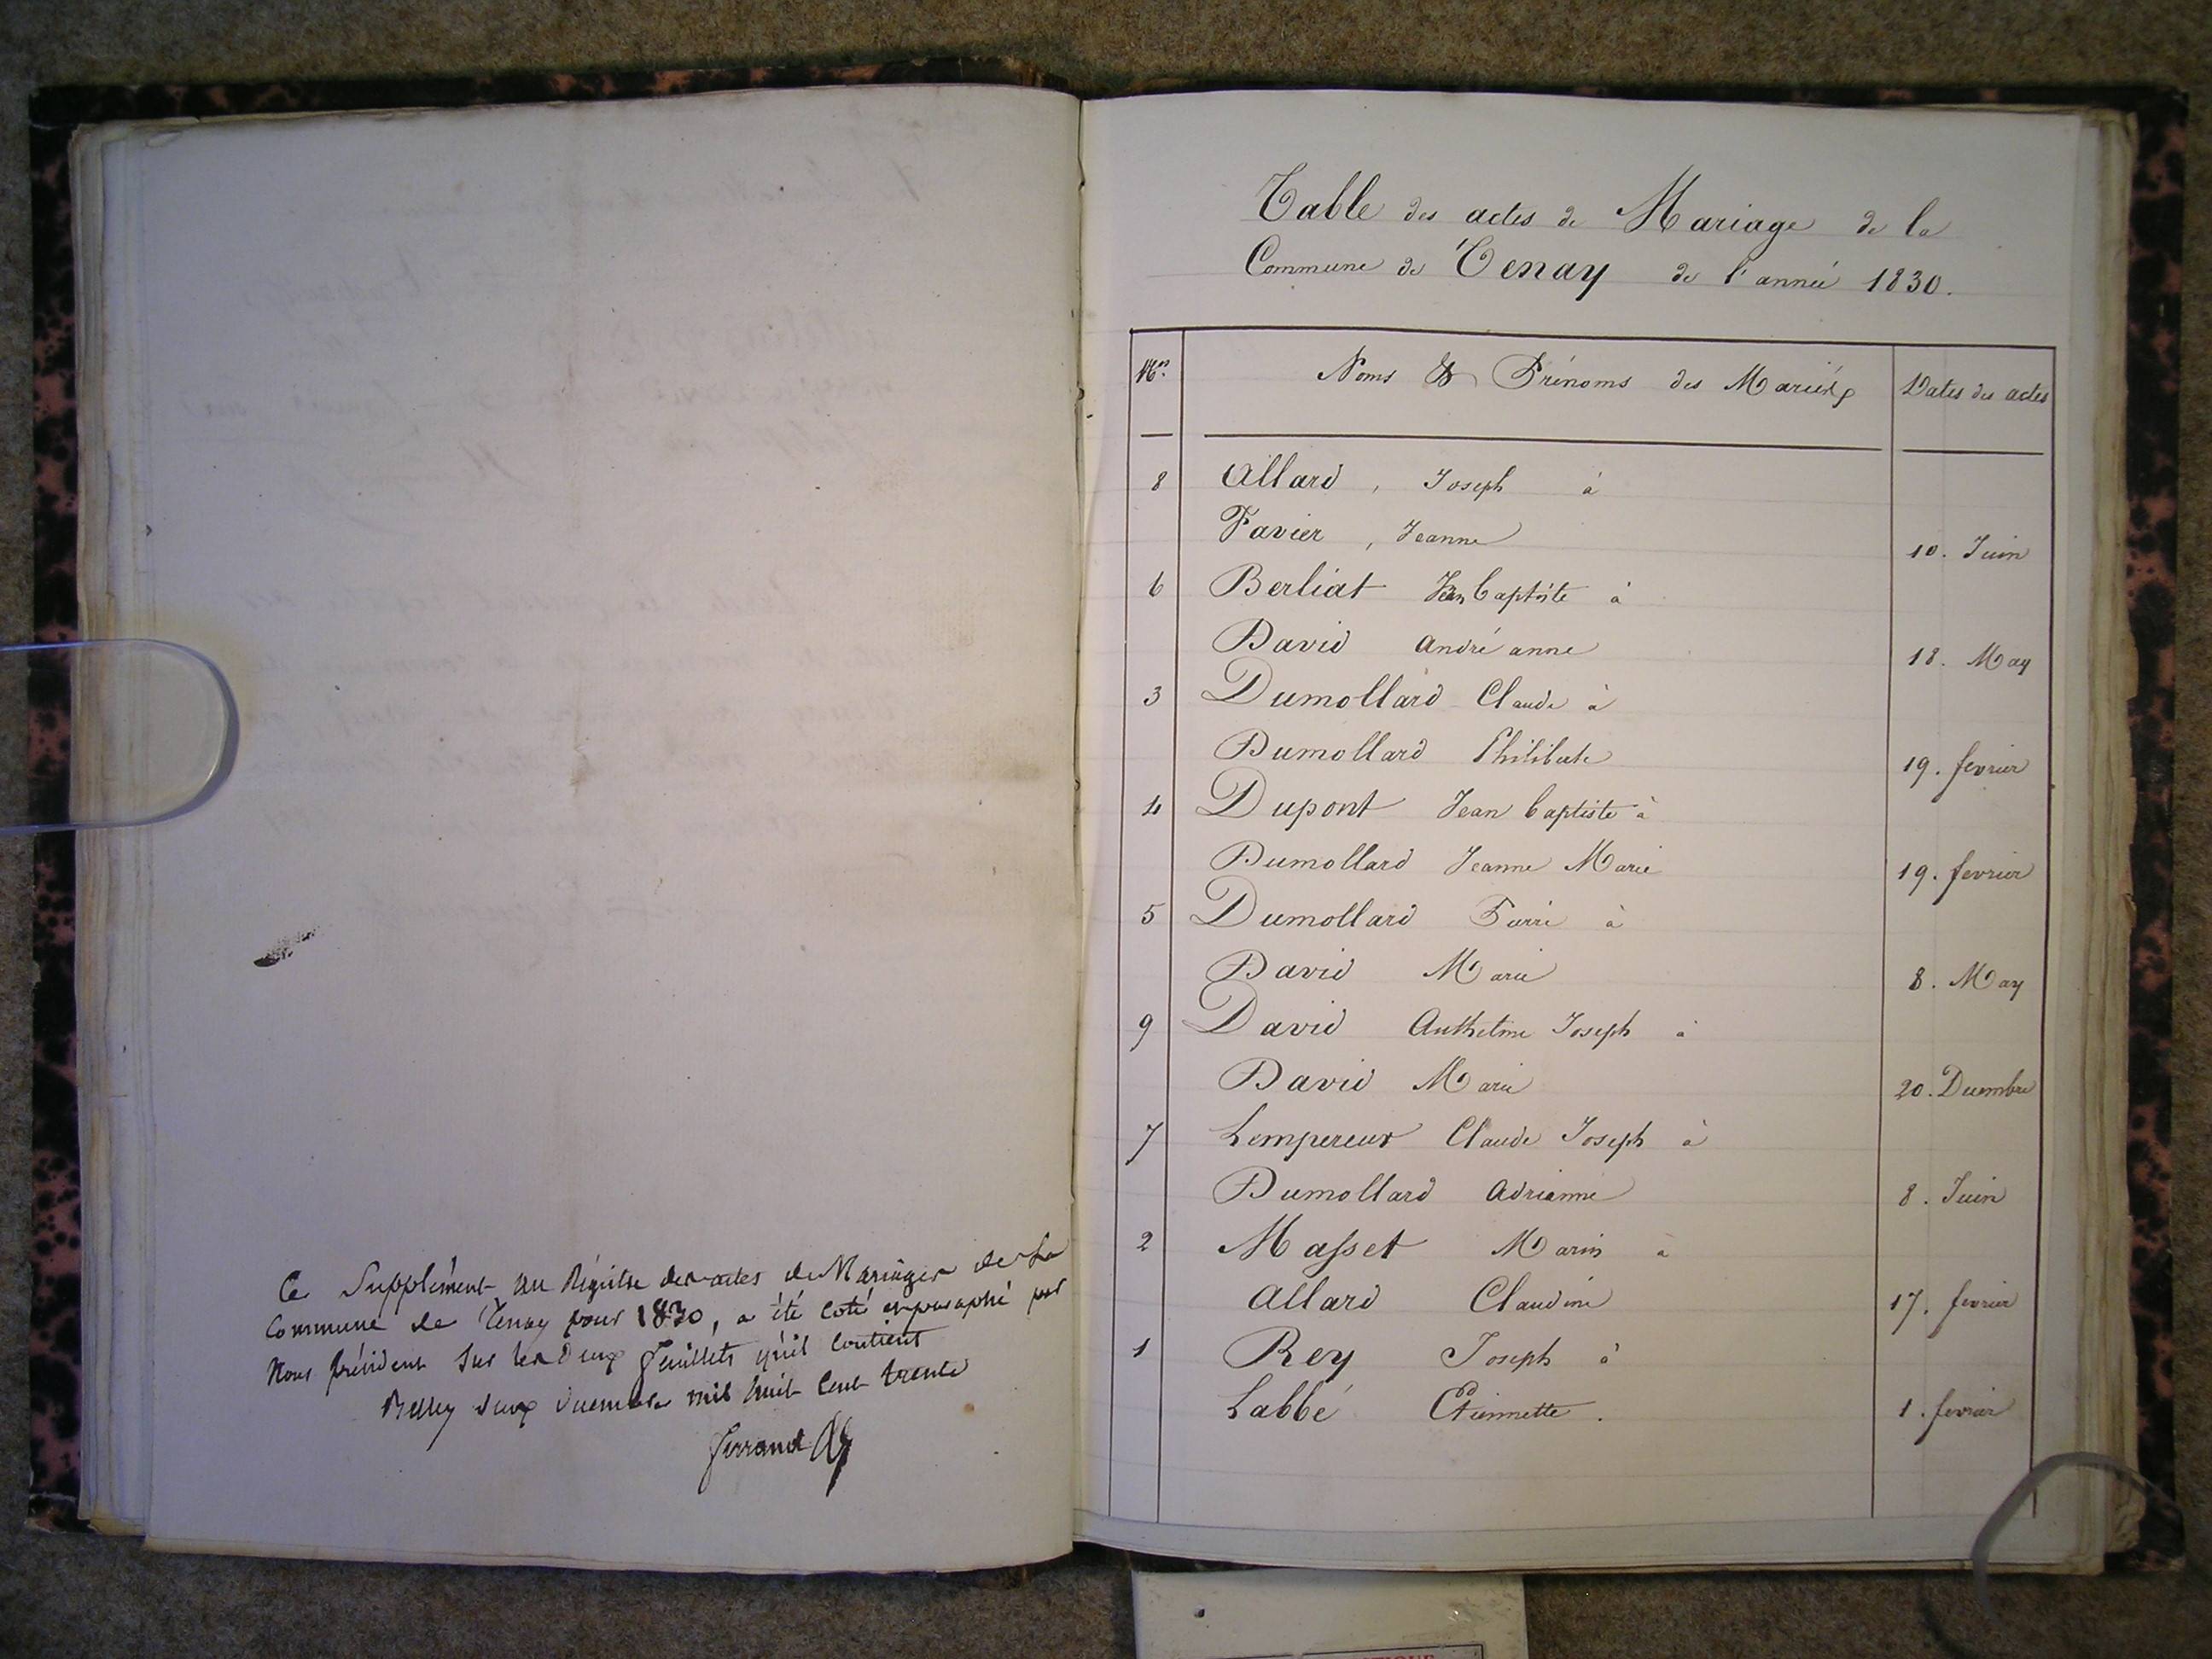 Ce Supplément au Régistre des actes de Mariages de La
Commune de Tenay pour 1830, a été coté et paraphé par
Nous président sur les deux feuillets qu'il contient
Belley deux decembre mil huit cent trente
Ferrand
Table des actes de Mariage de la
Commune de Tenay de l'année 1830.
Nos Noms & Prénoms des Mariés Dates des actes
8 Allard, Joseph à
Favier, Jeanne 10. Juin
6 Berliat Jean baptiste à
David André anne 18. May
3 Dumollard Claude à
Dumollard Philiberte 19. fevrier
4 Dupont Jean baptiste à
Dumollard Jeanne Marie 19. fevrier
5 Dumollard Pierre à
David Marie 8. May
9 David Anthelme Joseph à
David Marie 20. Decembre
7 Lempereur Claude Joseph à
Dumollard Adrianne 8. Juin
2 Masset Marin à
Allard Claudine 17. fevrier
1 Rey Joseph à
Labbé Etiennette. 1. fevrier